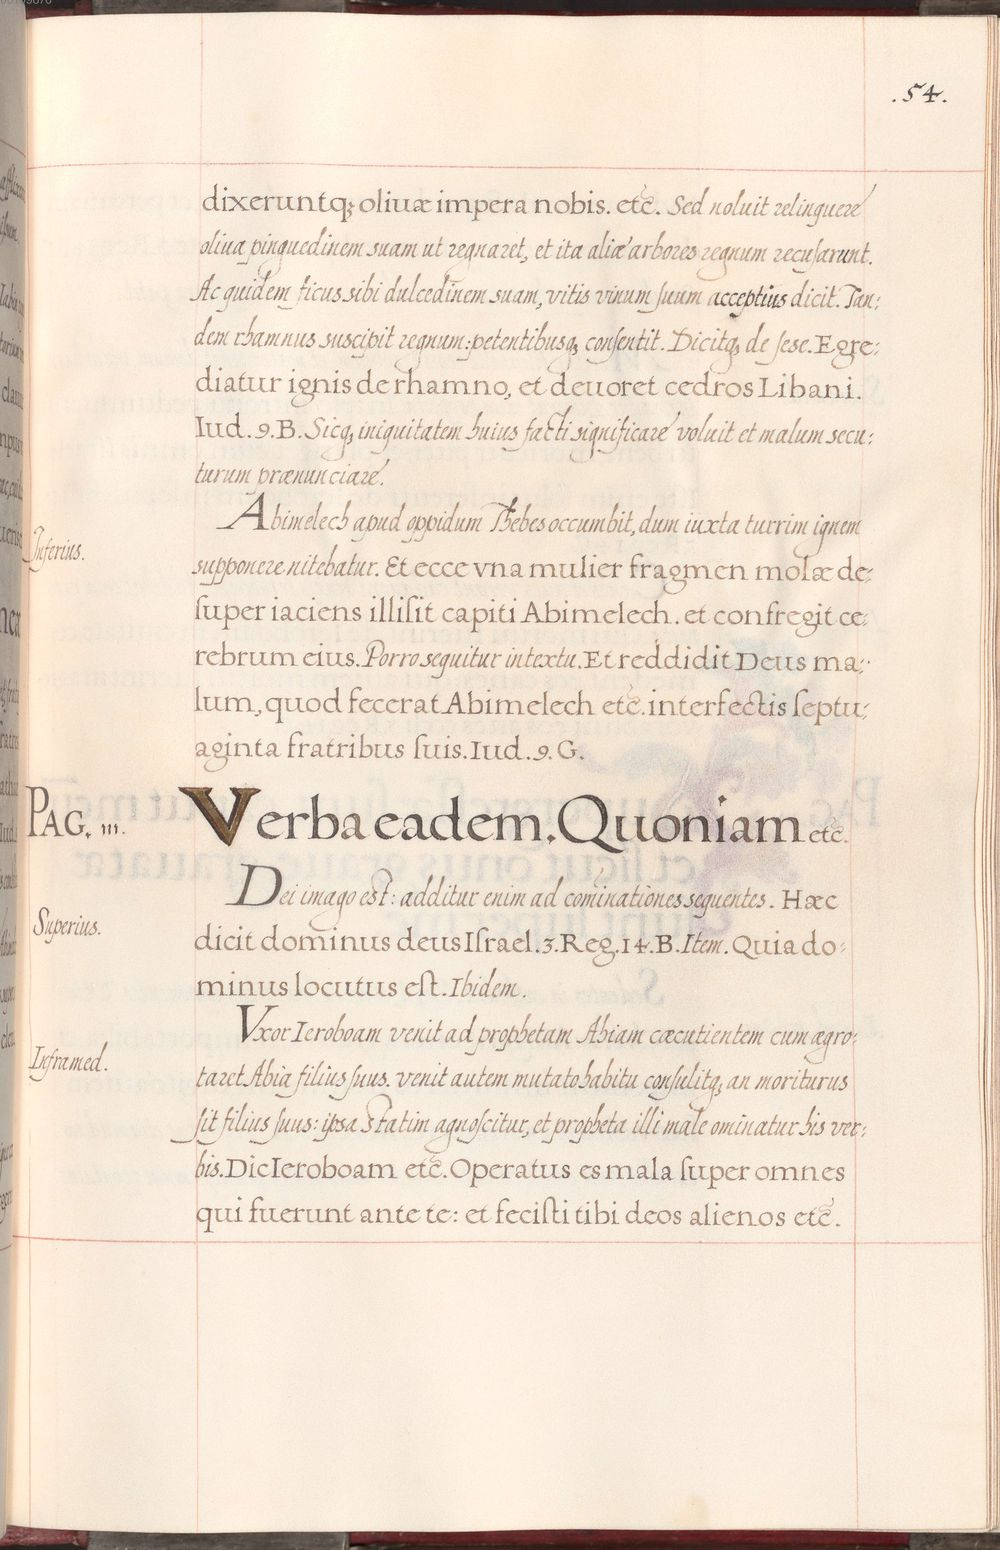 .54.
dixeruntq; oliuæ impera nobis. etc̃. Sed noluit relinquere
oliua pinguedinem suam ut regnaret, et ita aliæ arbores regnum recuſarunt.
Ac quidem ficus sibi dulcedinem suam, vitis vinum ſuum acceptius dicit. Tan:
dem rhamnus suscipit regnum: petentibusq; conſentit. Dicitq; de ſese. Egre:
diatur ignis de rhamno, et deuoret cedros Libani.
Iud. 9. B. Sicq; iniquitatem huius facti significare voluit et malum secu:
turum prænunciare.
Abimelech apud oppidum Thebes occumbit, dum iuxta turrim ignem
Inferius.
supponere nitebatur. Et ecce vna mulier fragmen molæ de:
ſuper iaciens illiſit capiti Abimelech. et confregit ce:
rebrum eius. Porro sequitur in textu. Et reddidit Deus ma:
lum, quod fecerat Abimelech etc̃. interfectis ſeptu:
aginta fratribus ſuis. Iud. 9. G.
PAG. III.
Verba eadem. Quoniam etc̃.
Dei imago est: additur enim ad com̃inationes sequentes. Hæc
Superius.
dicit dominus deus Iſrael. 3. Reg. 14. B. Item. Quia do:
minus locutus eſt. Ibidem.
Vxor Ieroboam venit ad prophetam Abiam cæcutientem cum ægro:
Inframed.
taret Abia filius ſuus. venit autem mutato habitu conſulitq; an moriturus
ſit filius ſuus: ipsa Statim agnoſcitur, et propheta illi male ominatur his ver:
bis. Dic Ieroboam etc̃. Operatus es mala ſuper omnes
qui fuerunt ante te: et feciſti tibi deos alienos etc̃.